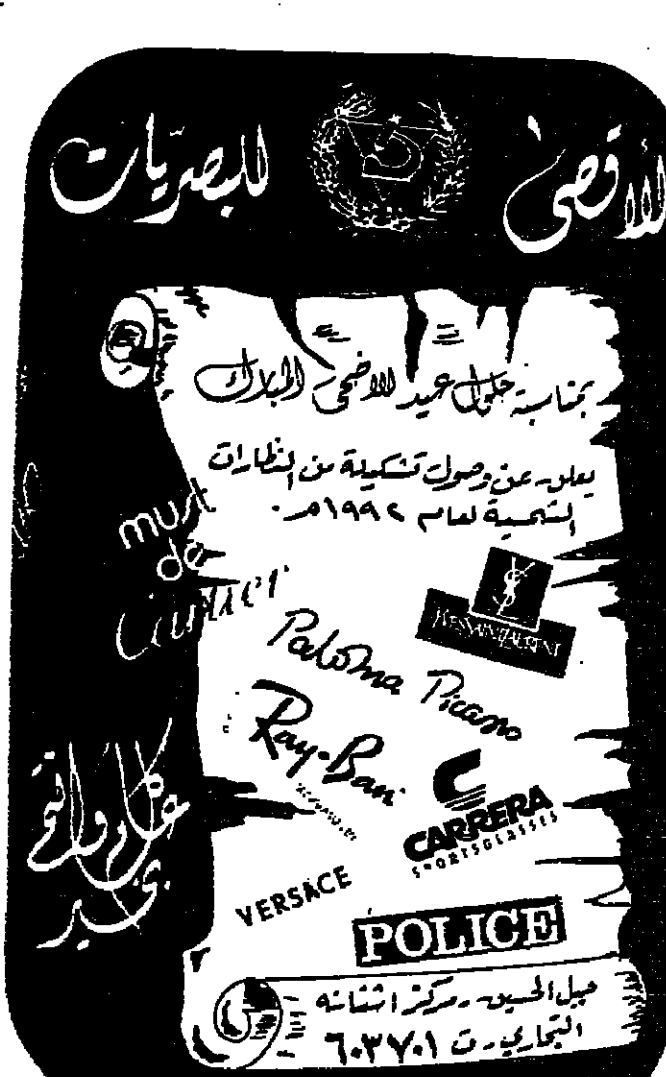 الأقصى للبصريات
بمناسبة حلول عيد الاضحى المبارك
يعلن عن وصول تشكيلة من النظارات
الشمسية لعام ١٩٩٢م.
must
de
Cartier
YVES SAINT LAURENT
Paloma Picasso
Ray-Ban
CARRERA
SPORTSGLASSES
VERSACE
POLICE
كل عام وانتم
بخير
جبل الحسين - مركز
التجاري - ت ٦٠٣٧٠١